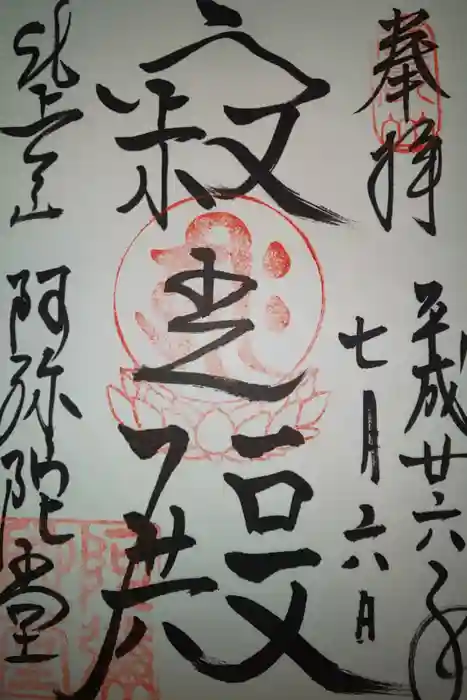 奉拝
平成廿六年
七月六日
寂光殿
阿弥陀堂